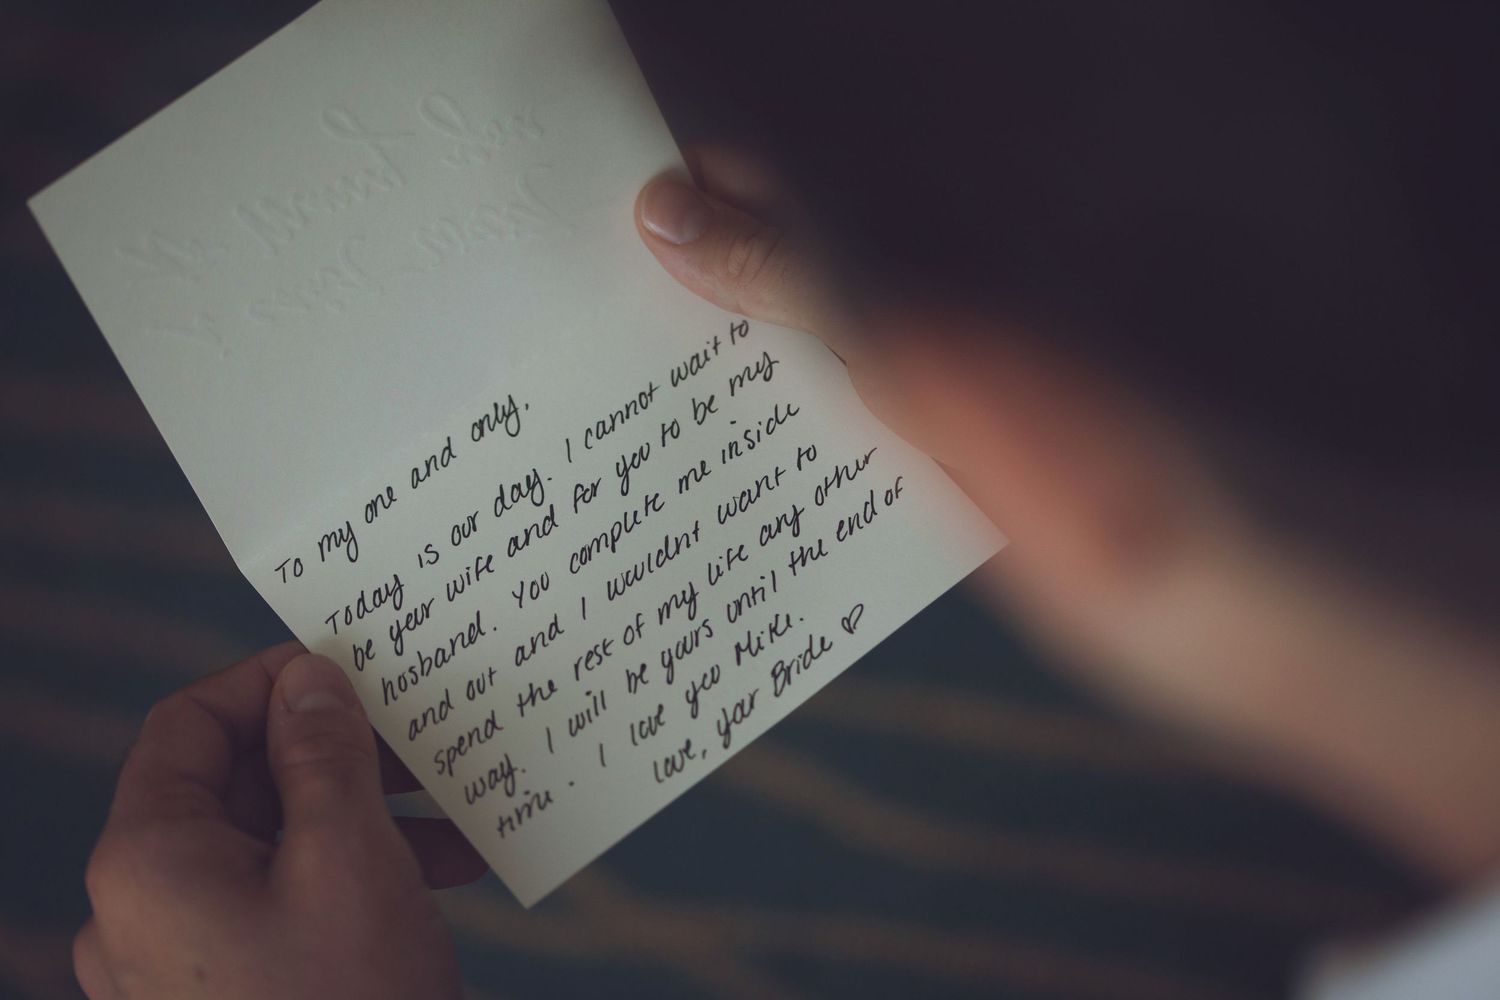 To my one and only,
Today is our day. I cannot wait to
be your wife and for you to be my
husband. You complete me inside
and out and I wouldnt want to
spend the rest of my life any other
way. I will be yours until the end of
time. I love you Mike.
Love, your Bride ♡